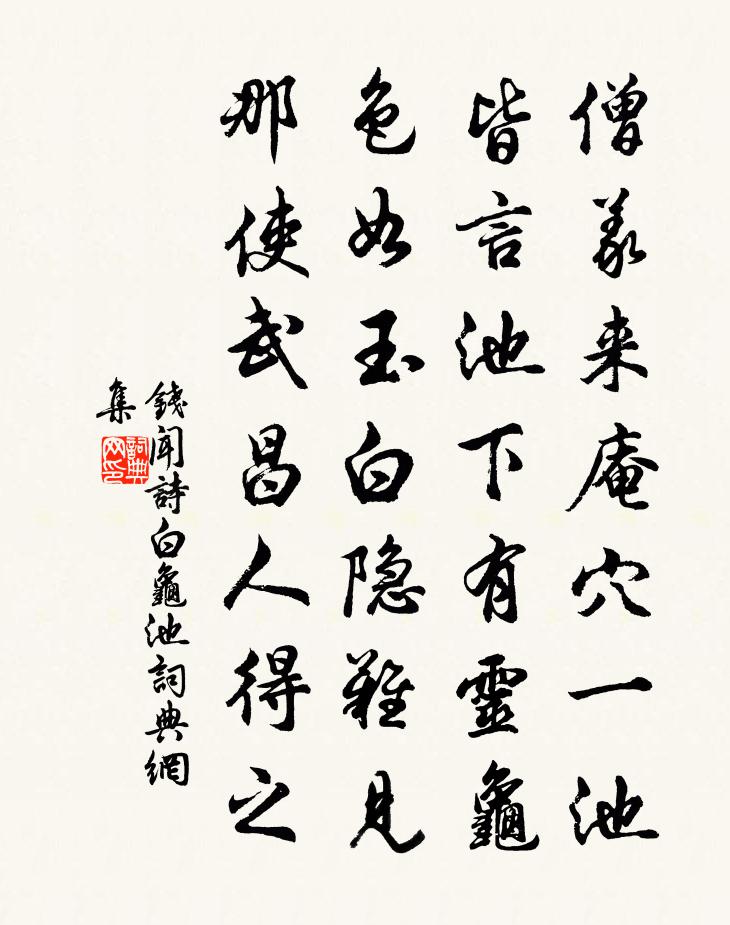 僧義来庵穴一池
皆言池下有靈龜
色如玉白隐難見
那使武昌人得之
錢聞詩白龜池詞典網
集
詞典
网印